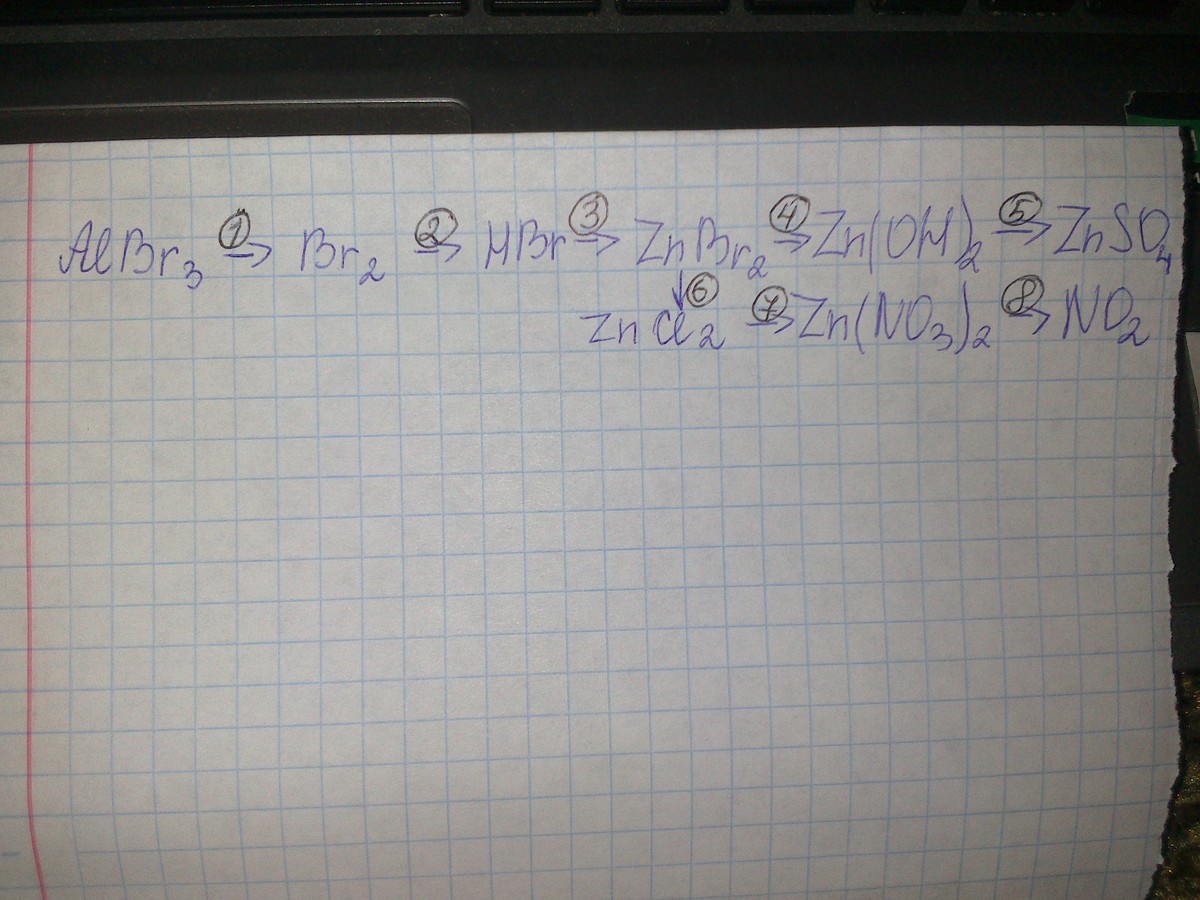 AlBr₃ ①→ Br₂ ②→ HBr ③→ ZnBr₂ ④→ Zn(OH)₂ ⑤→ ZnSO₄
↓⑥
ZnCl₂ ⑦→ Zn(NO₃)₂ ⑧→ NO₂